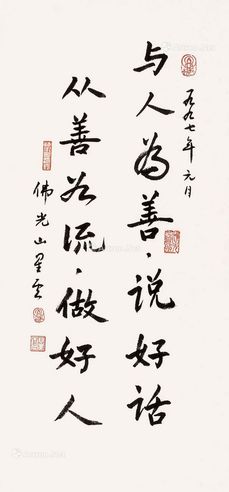 一九九七年元月
与人为善，说好话
从善若流，做好人
佛光山星云